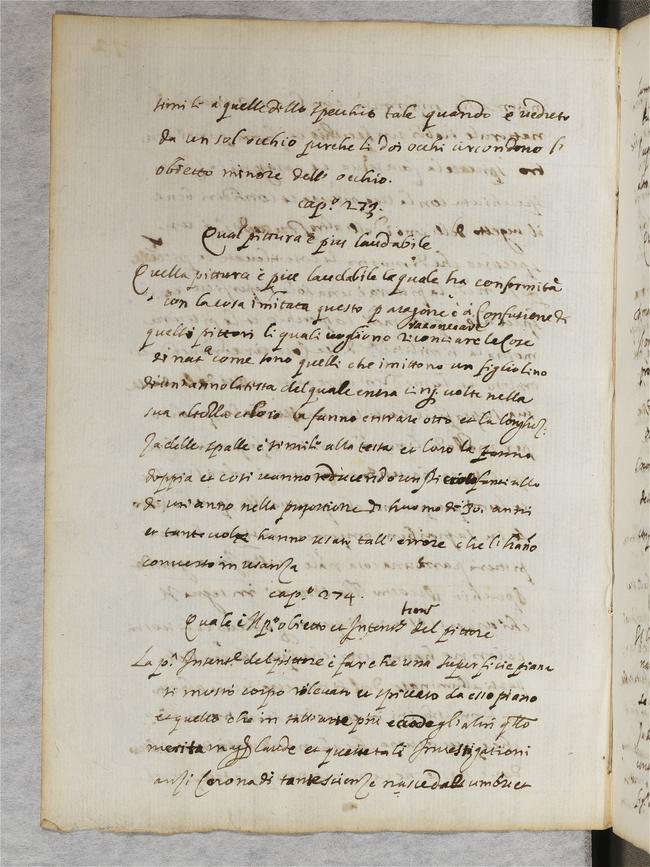 simili à quelle dello specchio tale quando è veduto
da un sol occhio purche li doi occhi circondono l'
obietto minore dell' occhio.
cap.º 273.
Qual pittura è piu laudabile
Quella pittura è piu laudabile la quale ha conformità
con la cosa imitata questo paragone è à Confusione di
quelli pittori li quali vogliono racconciare le Cose
di nat.ª come sono quelli che imittono un figliolino
di un' anno la testa del quale entra cinq volte nella
sua altezza et loro la fanno entrare otto et la longhez:
za delle spalle è simile alla testa et loro la fanno
doppia et cosi vanno reducendo un piccolo fanciullo
di un' anno nella proportione di huomo de 30. anni
et tante volte hanno usate tall' errore che l' hano
converso in usanza
cap.º 274.
Quale è Il pº obietto et Intentione del pittore
La pª Intent.e del pittore è fare che una superficie piana
si mostri corpo relevato et spiccato da esso piano
et quello che in tall' arte piu eccede gli altri q.llo
merita mag.r laude et queste tali Investigationi
anzi Corona di tante scienze nasce dale umbre et